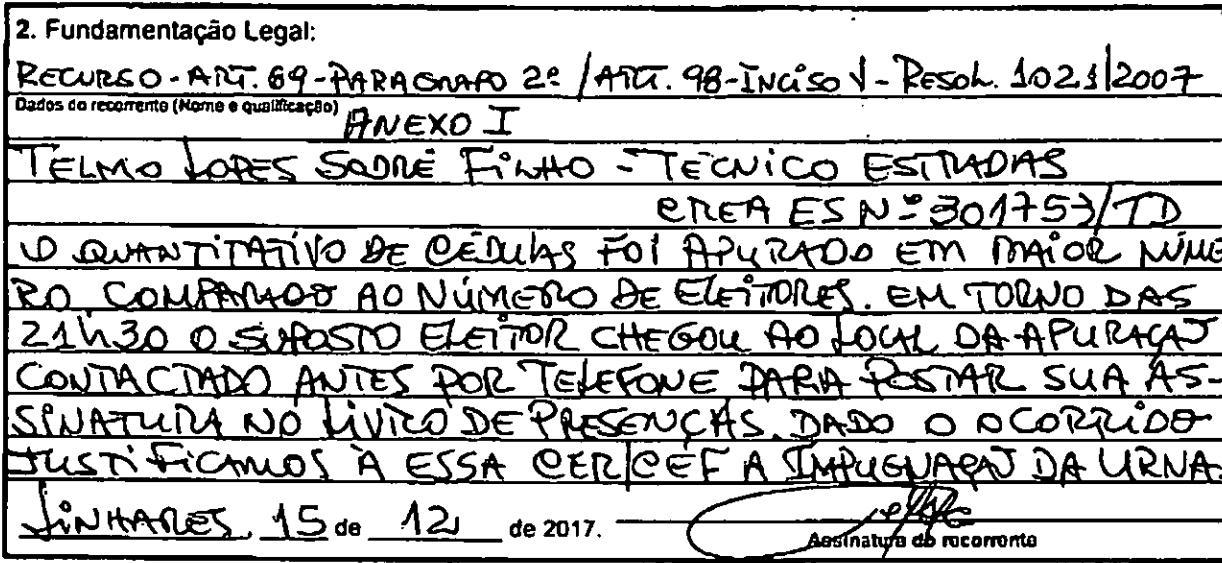 2. Fundamentação Legal:
RECURSO - ART. 69 - PARAGRAFO 2º / ART. 98 - INCISO V - RESOL. 1021/2007
Dados do recorrente (Nome e qualificação) ANEXO I
TELMO LOPES SODRÉ FILHO - TÉCNICO ESTRADAS
CREA ES Nº 301753/TD
O QUANTITATIVO DE CÉDULAS FOI APURADO EM MAIOR NÚME
RO COMPARADO AO NÚMERO DE ELEITORES. EM TORNO DAS
21h30 O SUPOSTO ELEITOR CHEGOU AO LOCAL DA APURAÇAJ
CONTACTADO ANTES POR TELEFONE PARA POSTAR SUA AS-
SINATURA NO LIVRO DE PRESENÇAS. DADO O OCORRIDO
JUSTIFICAMOS À ESSA CER/CEF A IMPUGNAÇAJ DA URNA.
LINHARES, 15 de 12 de 2017.
Assinatura do recorrente